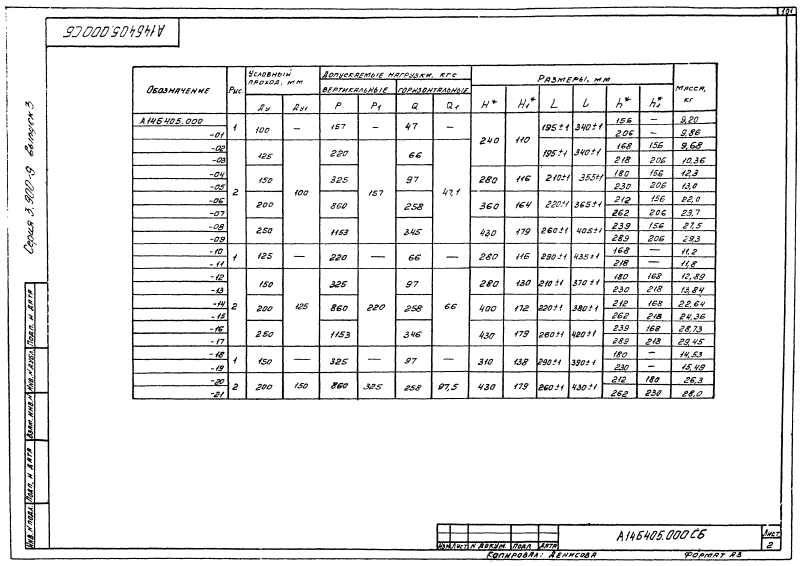 101
А14Б405.000СБ
Серия 3.900-9 выпуск 3
Обозначение Рис. Условный проход, мм Допускаемые нагрузки, кгс Размеры, мм Масса, кг
вертикальные горизонтальные
Ду Ду1 Р Р1 Q Q1 H* H1* L l h* h1*
А14Б405.000 1 100 — 157 — 47 — 240 110 195±1 340±1 156 — 9,20
-01 206 — 9,86
-02 2 125 100 220 157 66 47,1 195±1 340±1 168 156 9,68
-03 218 206 10,36
-04 150 325 97 280 116 210±1 355±1 180 156 12,3
-05 230 206 13,0
-06 200 860 258 360 164 220±1 365±1 212 156 22,0
-07 262 206 23,7
-08 250 1153 345 430 179 260±1 405±1 239 156 27,5
-09 289 206 29,3
-10 1 125 — 220 — 66 — 280 116 290±1 435±1 168 — 11,2
-11 218 — 11,8
-12 2 150 125 325 220 97 66 280 130 210±1 370±1 180 168 12,89
-13 230 218 13,84
-14 200 860 258 400 172 220±1 380±1 212 168 22,64
-15 262 218 24,36
-16 250 1153 346 430 179 260±1 420±1 239 168 28,73
-17 289 218 29,45
-18 1 150 — 325 — 97 — 310 138 290±1 390±1 180 — 14,53
-19 230 — 15,49
-20 2 200 150 860 325 258 97,5 430 179 260±1 430±1 212 180 26,3
-21 262 230 28,0
Инв. № подл. Подп. и дата Взам. инв. № Инв. № дубл. Подп. и дата
Изм. Лист № докум. Подп. Дата
А14Б405.000 СБ
Лист
2
Копировал: Денисова Формат А3